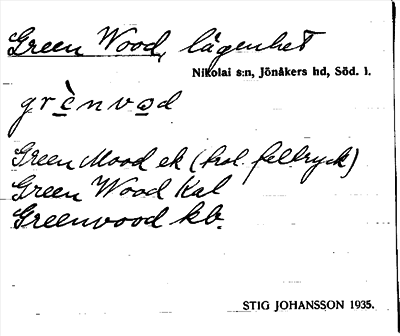 Green Wood, lägenhet
Nikolai s:n, Jönåkers hd, Söd. l.
grènvɷd
Green Mood ek (trol. feltryck)
Green Wood Kal
Greenwood kb.
STIG JOHANSSON 1935.